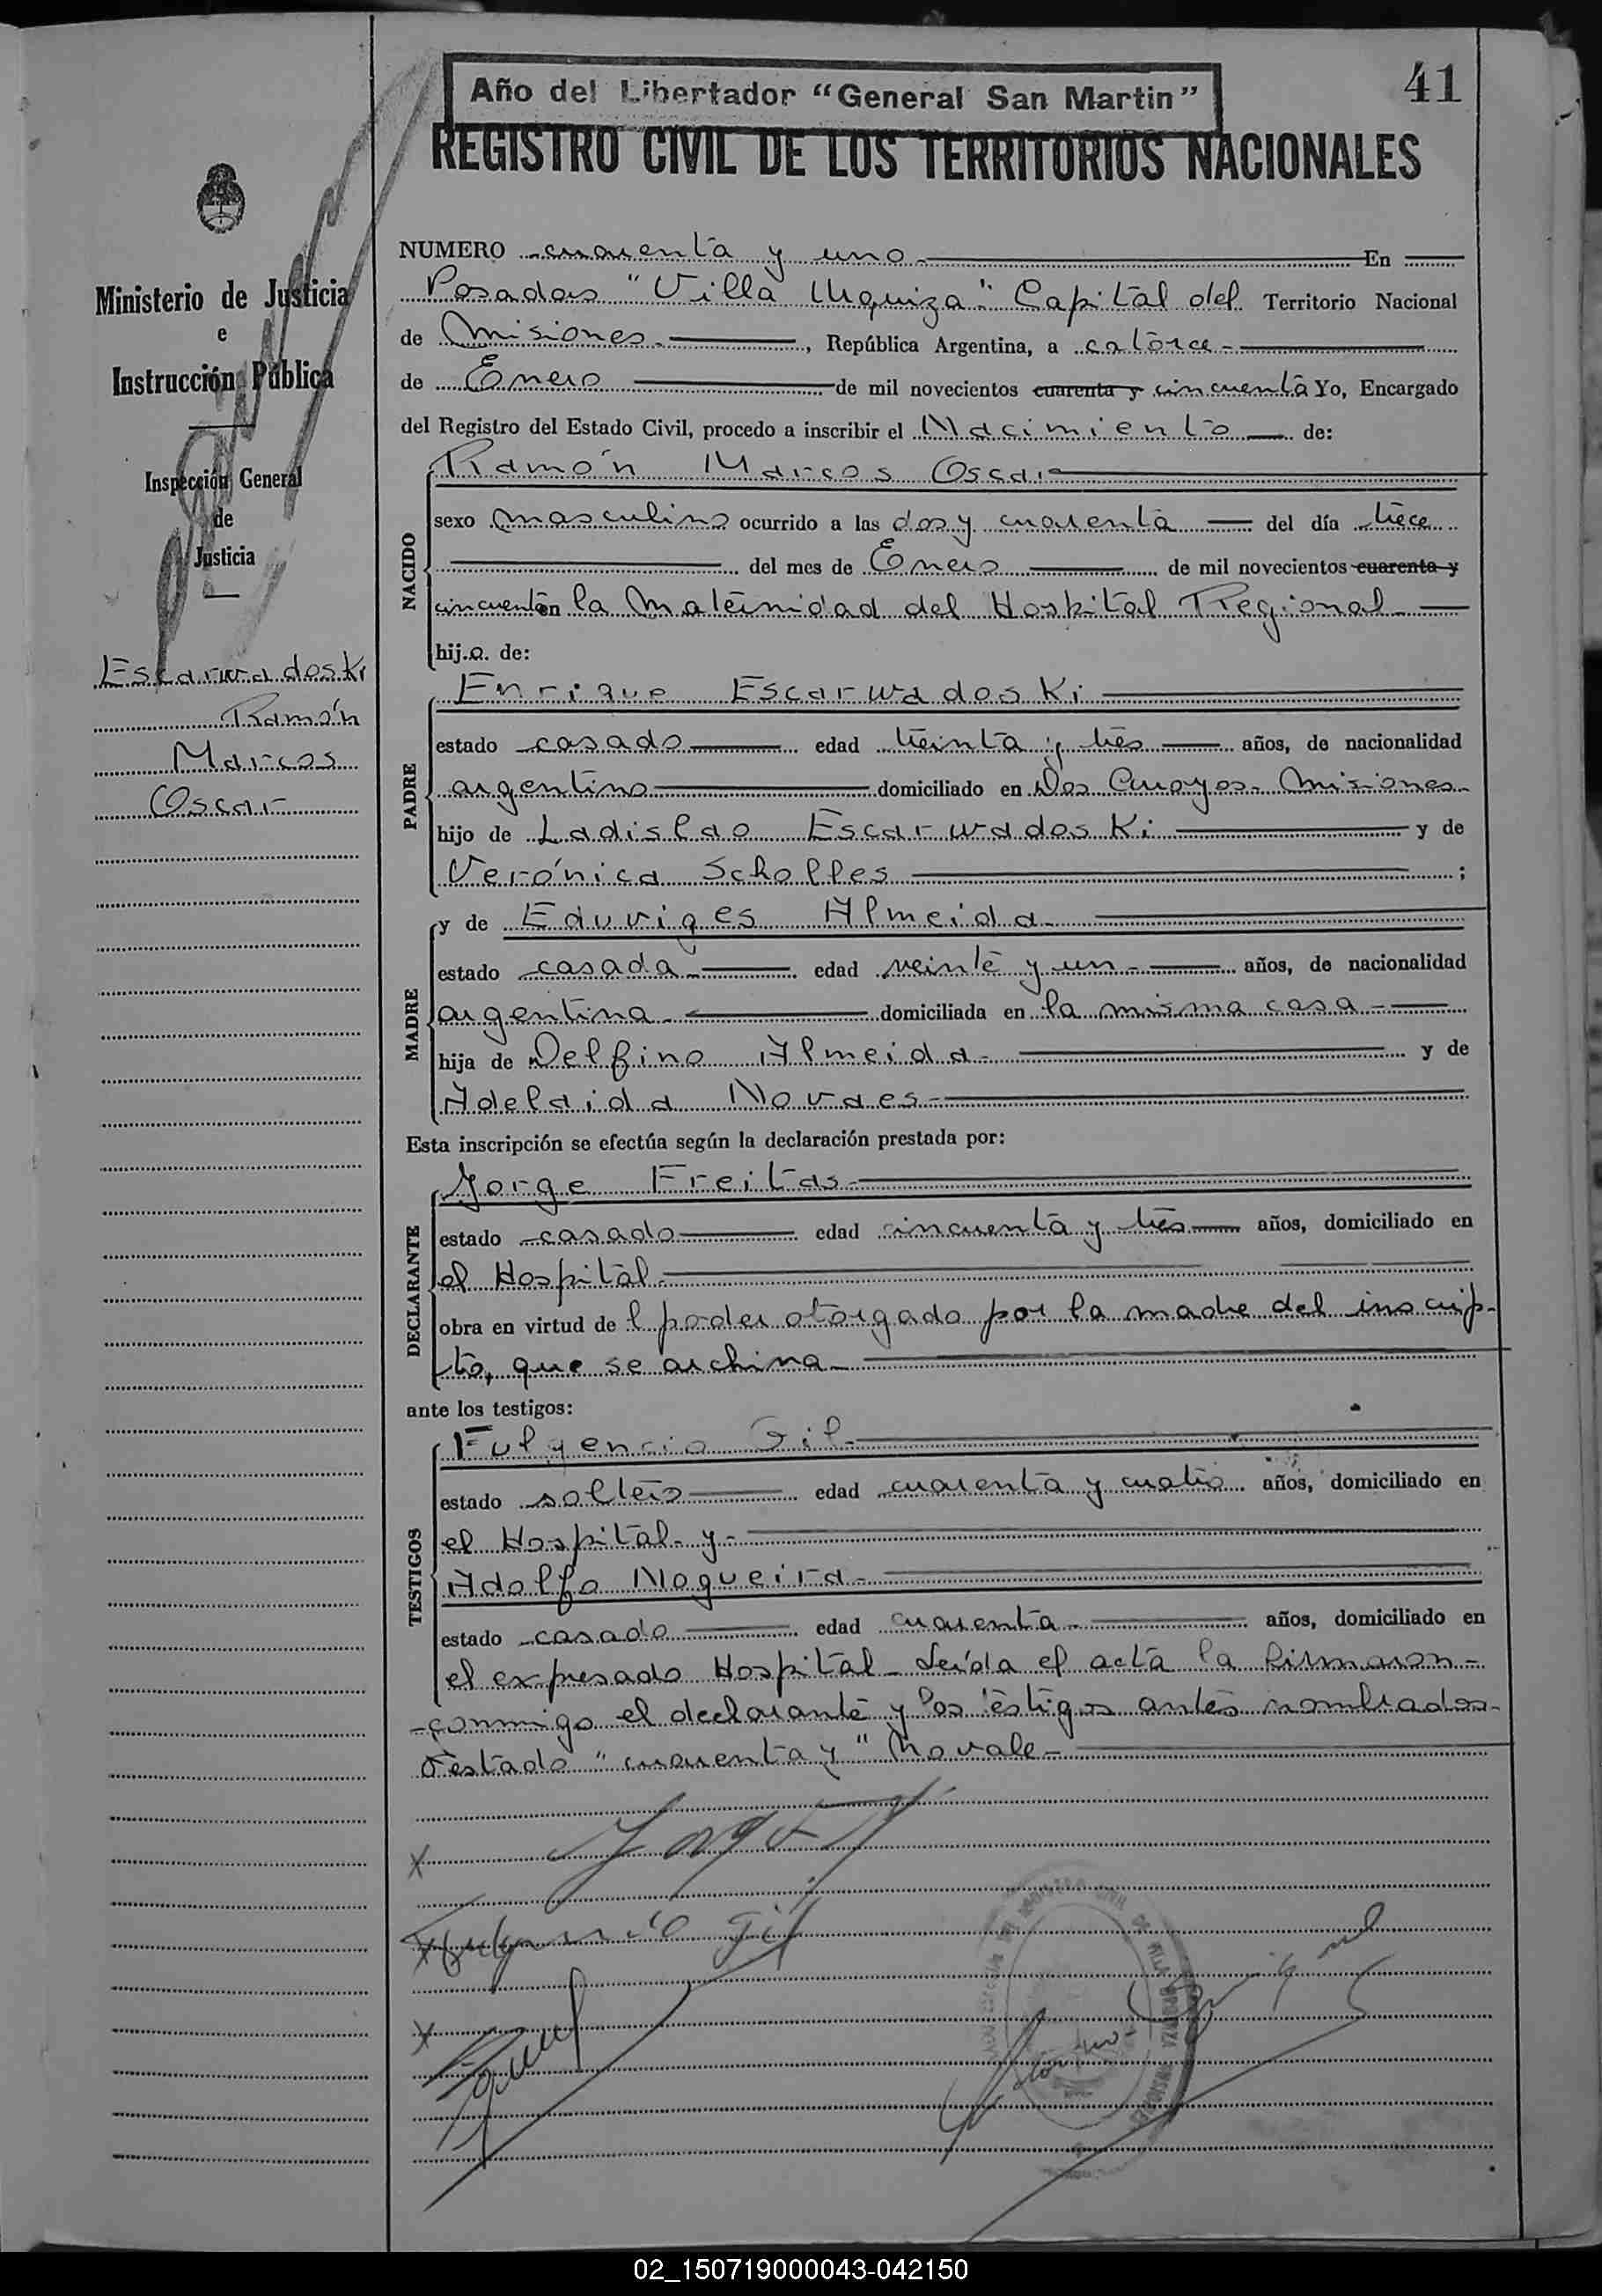 41
Año del Libertador "General San Martin"
REGISTRO CIVIL DE LOS TERRITORIOS NACIONALES
Ministerio de Justicia
e
Instrucción Pública
Inspección General
de
Justicia
Escarwadoski
Ramón
Marcos
Oscar
NUMERO cuarenta y uno En
Posadas "Villa Urquiza" Capital del Territorio Nacional
de Misiones, República Argentina, a catorce
de Enero de mil novecientos cuarenta y cincuenta Yo, Encargado
del Registro del Estado Civil, procedo a inscribir el Nacimiento de:
NACIDO
Ramón Marcos Oscar
sexo masculino ocurrido a las dos y cuarenta del día trece
del mes de Enero de mil novecientos cuarenta y
cincuenta en la Maternidad del Hospital Regional
hij.o. de:
PADRE
Enrique Escarwadoski
estado casado edad treinta y tres años, de nacionalidad
argentino domiciliado en Dos Arroyos- Misiones-
hijo de Ladislao Escarwadoski y de
Verónica Scholles ;
MADRE
y de Eduviges Almeida
estado casada edad veinte y un años, de nacionalidad
argentina domiciliada en la misma casa
hija de Delfino Almeida y de
Adelaida Novaes
Esta inscripción se efectúa según la declaración prestada por:
DECLARANTE
Jorge Freitas
estado casado edad cincuenta y tres años, domiciliado en
el Hospital
obra en virtud de l poder otorgado por la madre del inscrip-
to, que se archiva
ante los testigos:
TESTIGOS
Fulgencio Gil
estado soltero edad cuarenta y cuatro años, domiciliado en
el Hospital y
Adolfo Nogueira
estado casado edad cuarenta años, domiciliado en
el expresado Hospital- Leída el acta la firmaron-
-conmigo el declarante y los testigos antes nombrados-
Testado "cuarenta y" No vale
Fulgencio Gil
02_150719000043-042150